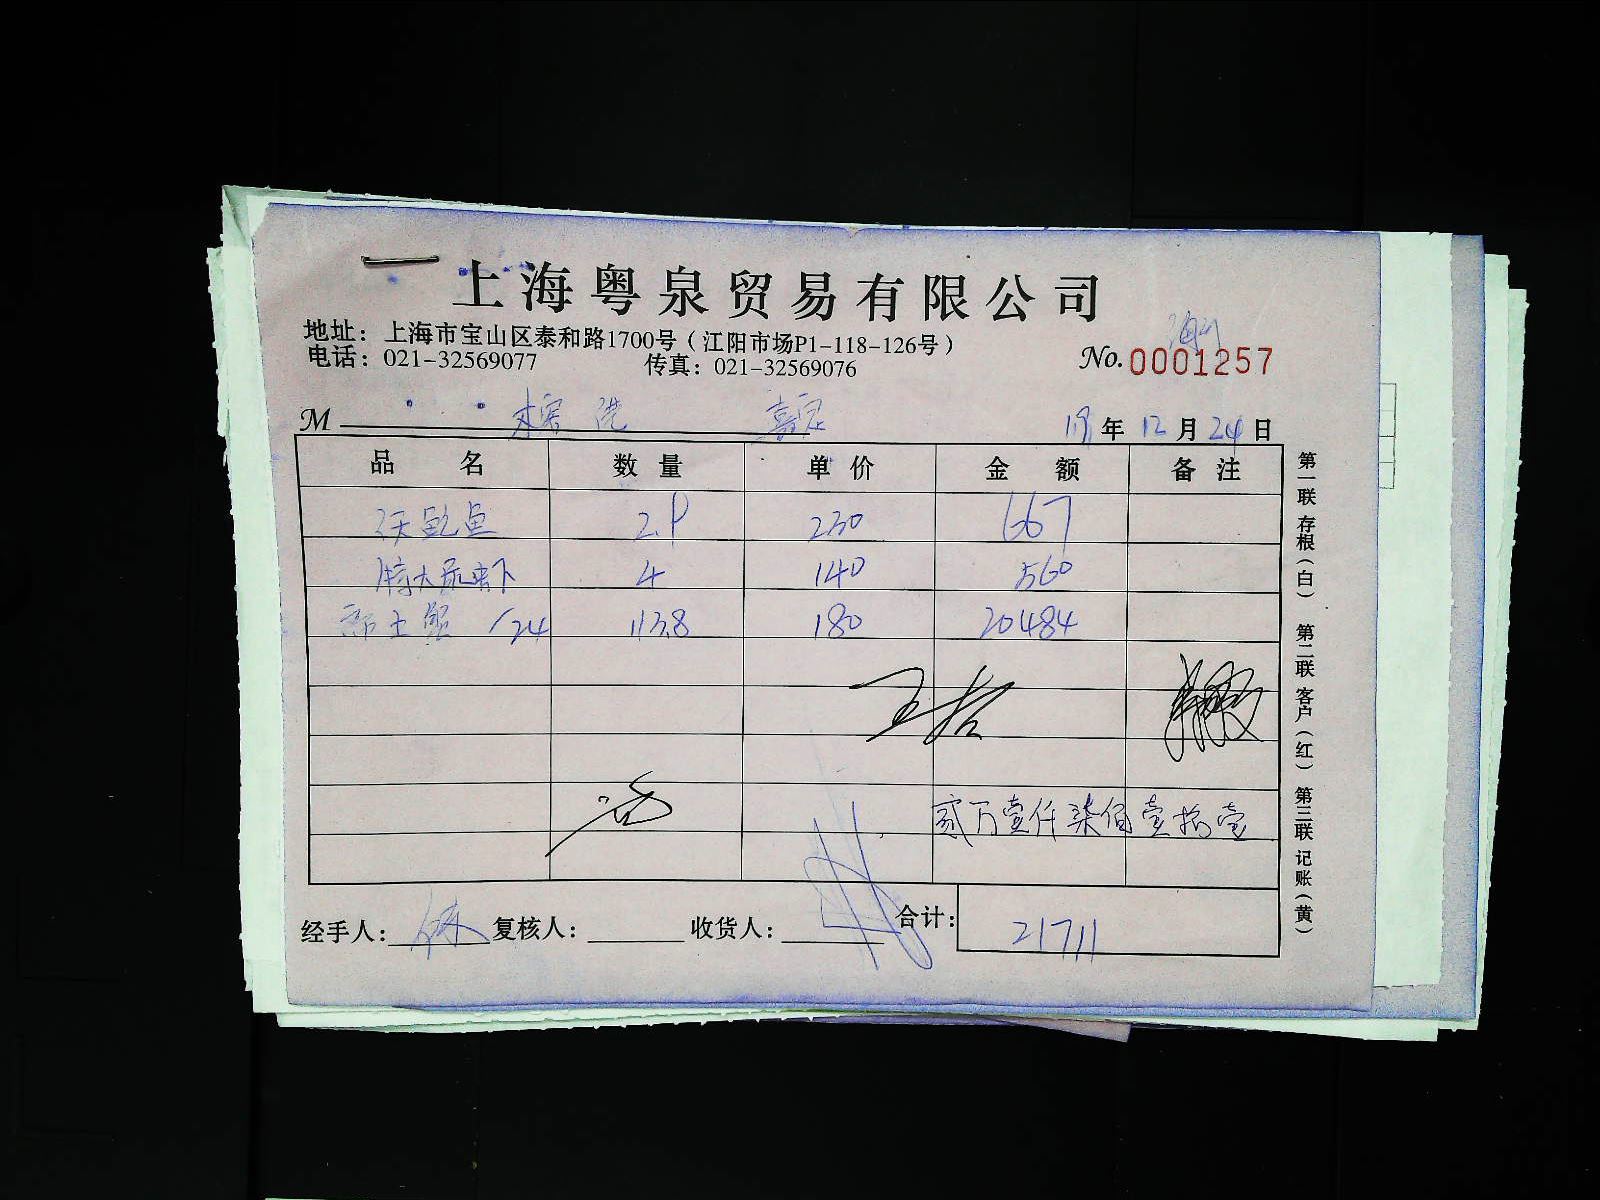 上海粤泉贸易有限公司
地址：上海市宝山区泰和路1700号（江阳市场P1-118-126号）
电话：021-32569077 传真：021-32569076 No.0001257
M 嘉定 19年12月24日
品名 数量 单价 金额 备注
鲍鱼 2.9 230 667
特大尿虾 4 140 560
/24 113.8 180 20484
贰万壹仟柒佰壹拾壹
经手人： 复核人： 收货人： 合计：21711
第一联 存根（白） 第二联 客户（红） 第三联 记账（黄）